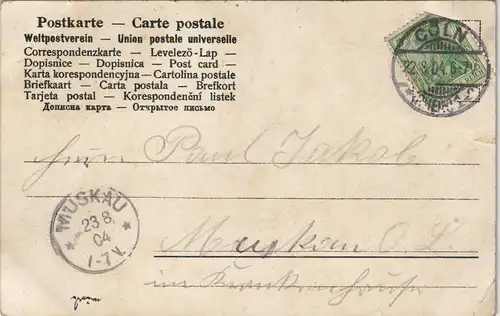 Postkarte — Carte postale
Weltpostverein — Union postale universelle
Correspondenzkarte — Levelező-Lap —
Dopisnice — Dopisnica — Post card —
Karta korespondencyjna — Cartolina postale
Briefkaart — Carta postala — Brefkort
Tarjeta postal — Korespondenční listek
Дописна карта — Открытое письмо
CÖLN
22.8.04. 6-7
Herrn Paul Jakob
MUSKAU
23 8
04
1-7V.
Muskau O. L.
im Krankenhause